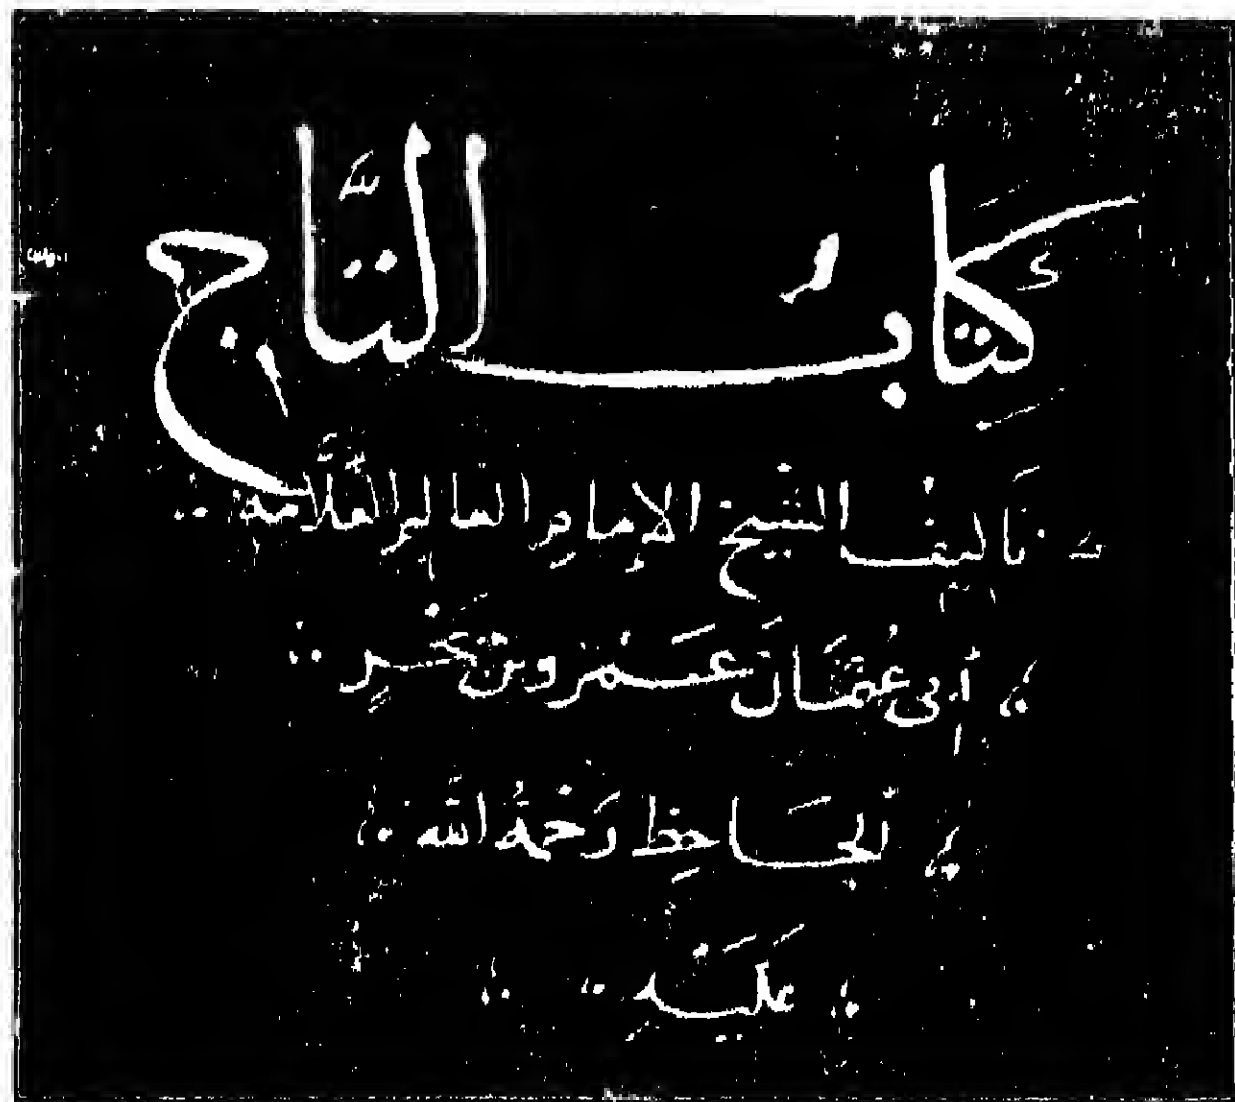 كتابُ التَّاج
تأليف الشيخ الإمام العالم العلّامة
أبي عُثمَانَ عَمْرو بن بَحْرٍ
الجَاحِظِ رَحْمَةُ اللَّه
عَلَيْهِ